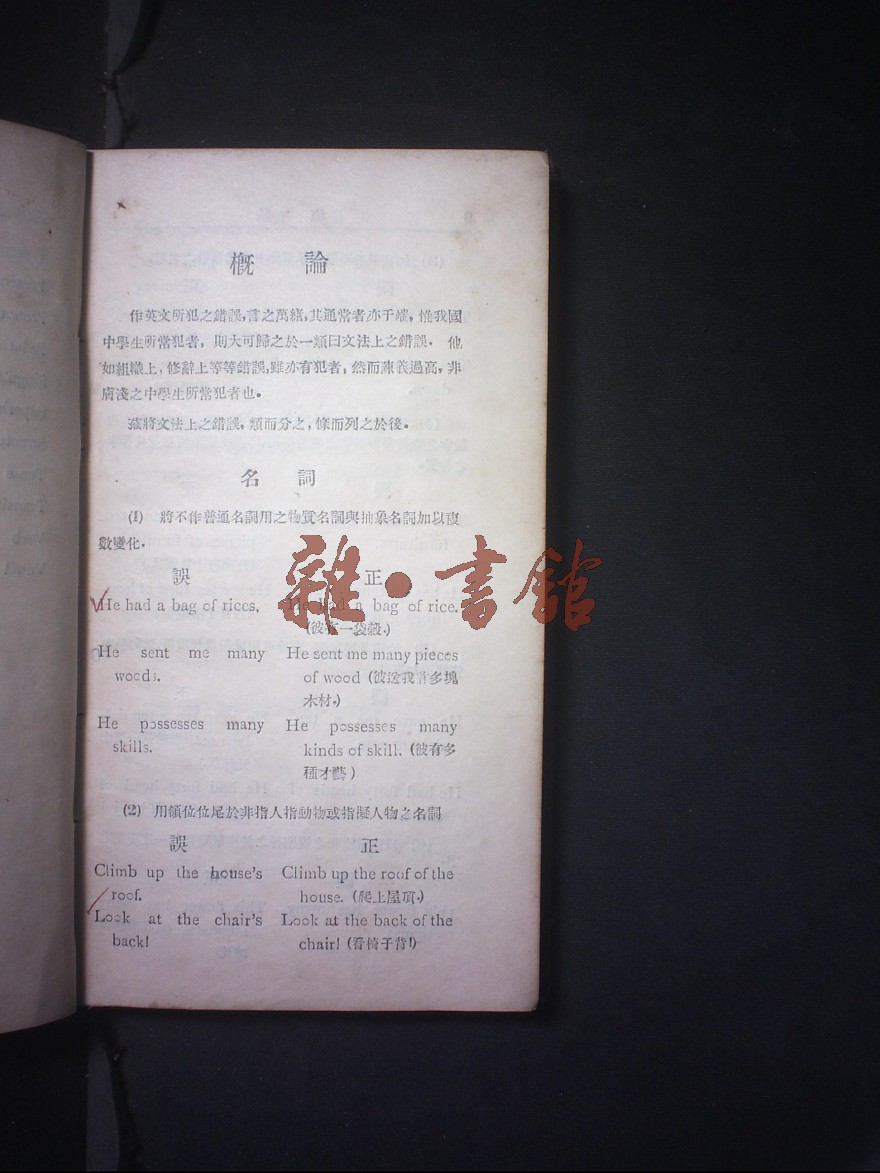 概論
作英文所犯之錯誤,言之萬緒,其通常者亦千端,惟我國
中學生所常犯者,則大可歸之於一類曰文法上之錯誤。他
如組織上,修辭上等等錯誤,雖亦有犯者,然而陳義過高,非
膚淺之中學生所常犯者也。
茲將文法上之錯誤,類而分之,條而列之於後。
名詞
(1) 將不作普通名詞用之物質名詞與抽象名詞加以複
數變化.
誤 正
He had a bag of rices. He had a bag of rice.
(彼有一袋穀.)
He sent me many He sent me many pieces
woods. of wood (彼送我許多塊
木材.)
He possesses many He possesses many
skills. kinds of skill. (彼有多
種才藝)
(2) 用領位位尾於非指人指動物或指擬人物之名詞
誤 正
Climb up the house's Climb up the roof of the
roof. house. (爬上屋項.)
Look at the chair's Look at the back of the
back! chair! (看椅子背!)
雜·書館